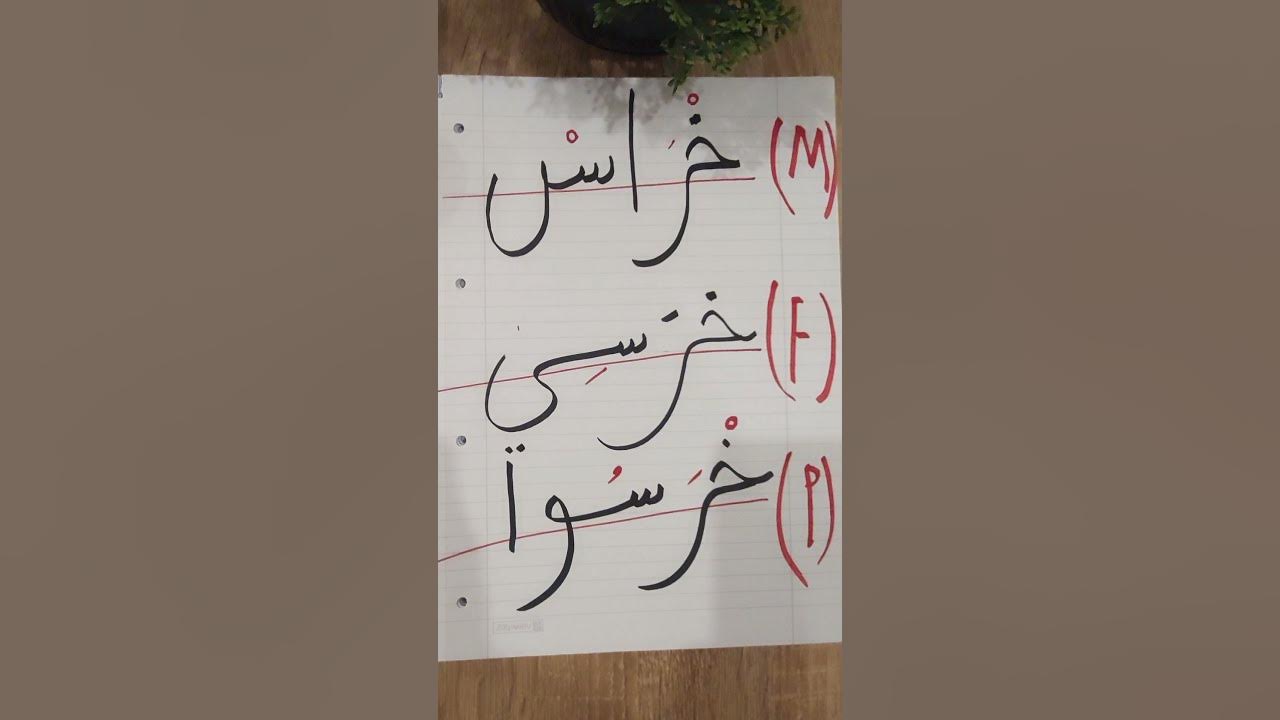 (M) خْرَاسْ
(F) خرَسِى
(P) خْرَسُوا